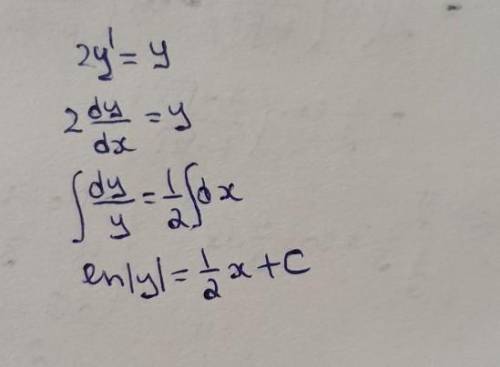 2y' = y
2 dy/dx = y
∫ dy/y = 1/2 ∫ dx
ln|y| = 1/2 x + C